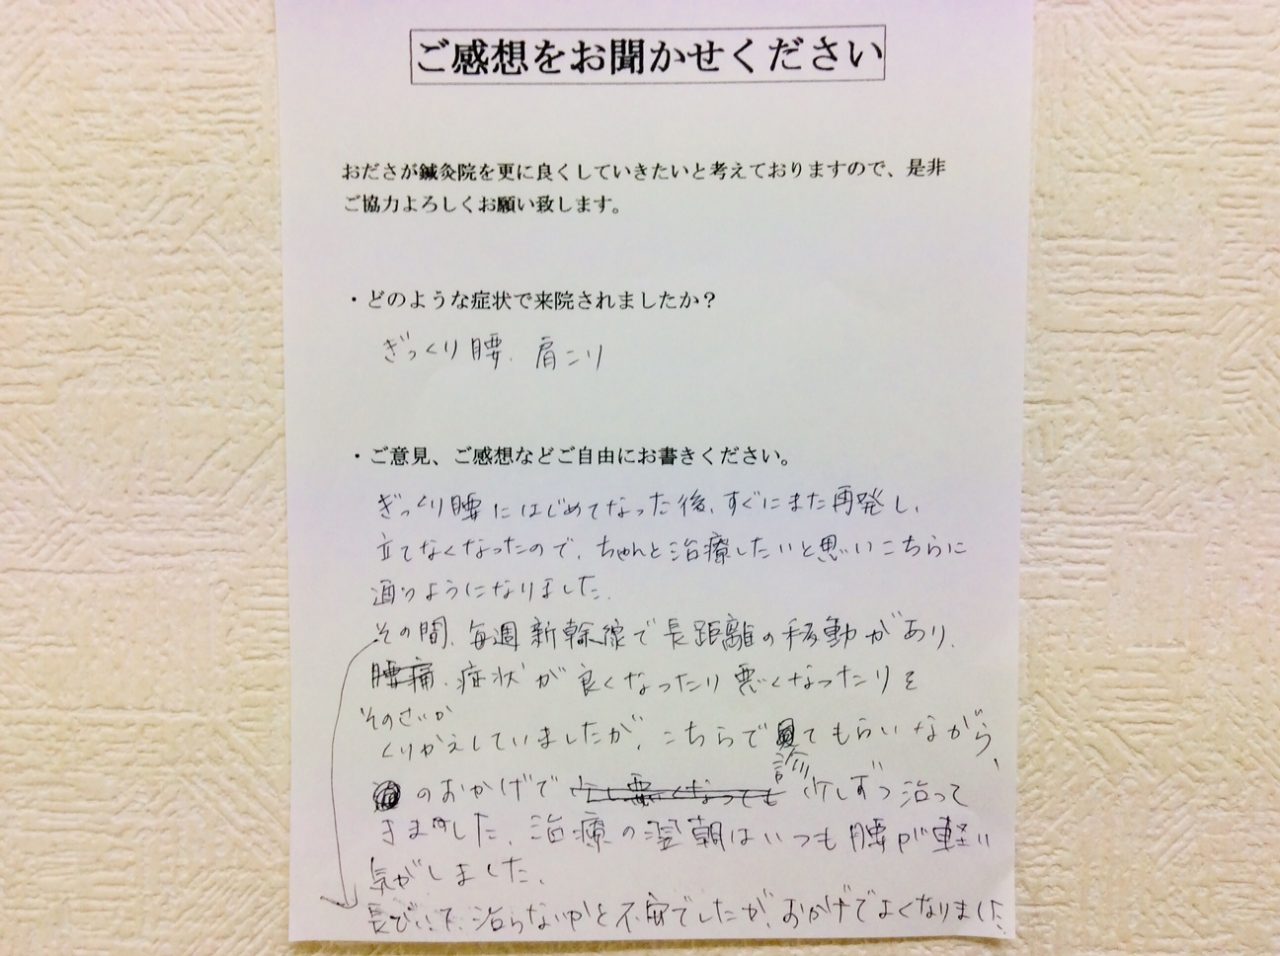 ご感想をお聞かせください
おださが鍼灸院を更に良くしていきたいと考えておりますので、是非
ご協力よろしくお願い致します。
・どのような症状で来院されましたか？
ぎっくり腰、肩こり
・ご意見、ご感想などご自由にお書きください。
ぎっくり腰にはじめてなった後、すぐにまた再発し、
立てなくなったので、ちゃんと治療したいと思いこちらに
通うようになりました。
その間、毎週新幹線で長距離の移動があり、
腰痛、症状が良くなったり悪くなったりを
そのせいか
くりかえしていましたが、こちらで診てもらいながら、
のおかげで 少しずつ治って
きました。治療の翌朝はいつも腰が軽い
気がしました。
長びいて、治らないかと不安でしたが、おかげでよくなりました。